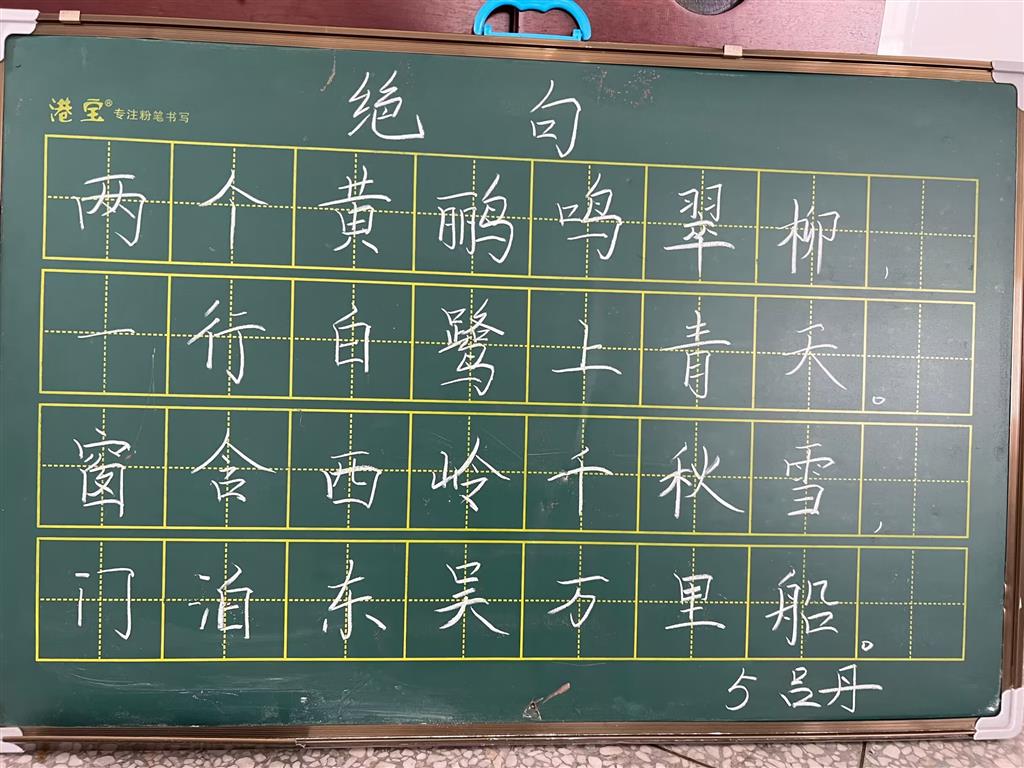 绝句
港宝® 专注粉笔书写
两个黄鹂鸣翠柳,
一行白鹭上青天。
窗含西岭千秋雪,
门泊东吴万里船。
5 吕丹